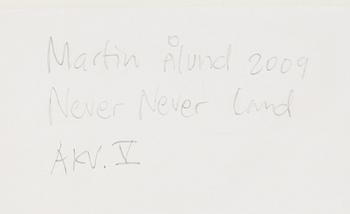 Martin Ålund 2009
Never Never Land
AKV. V